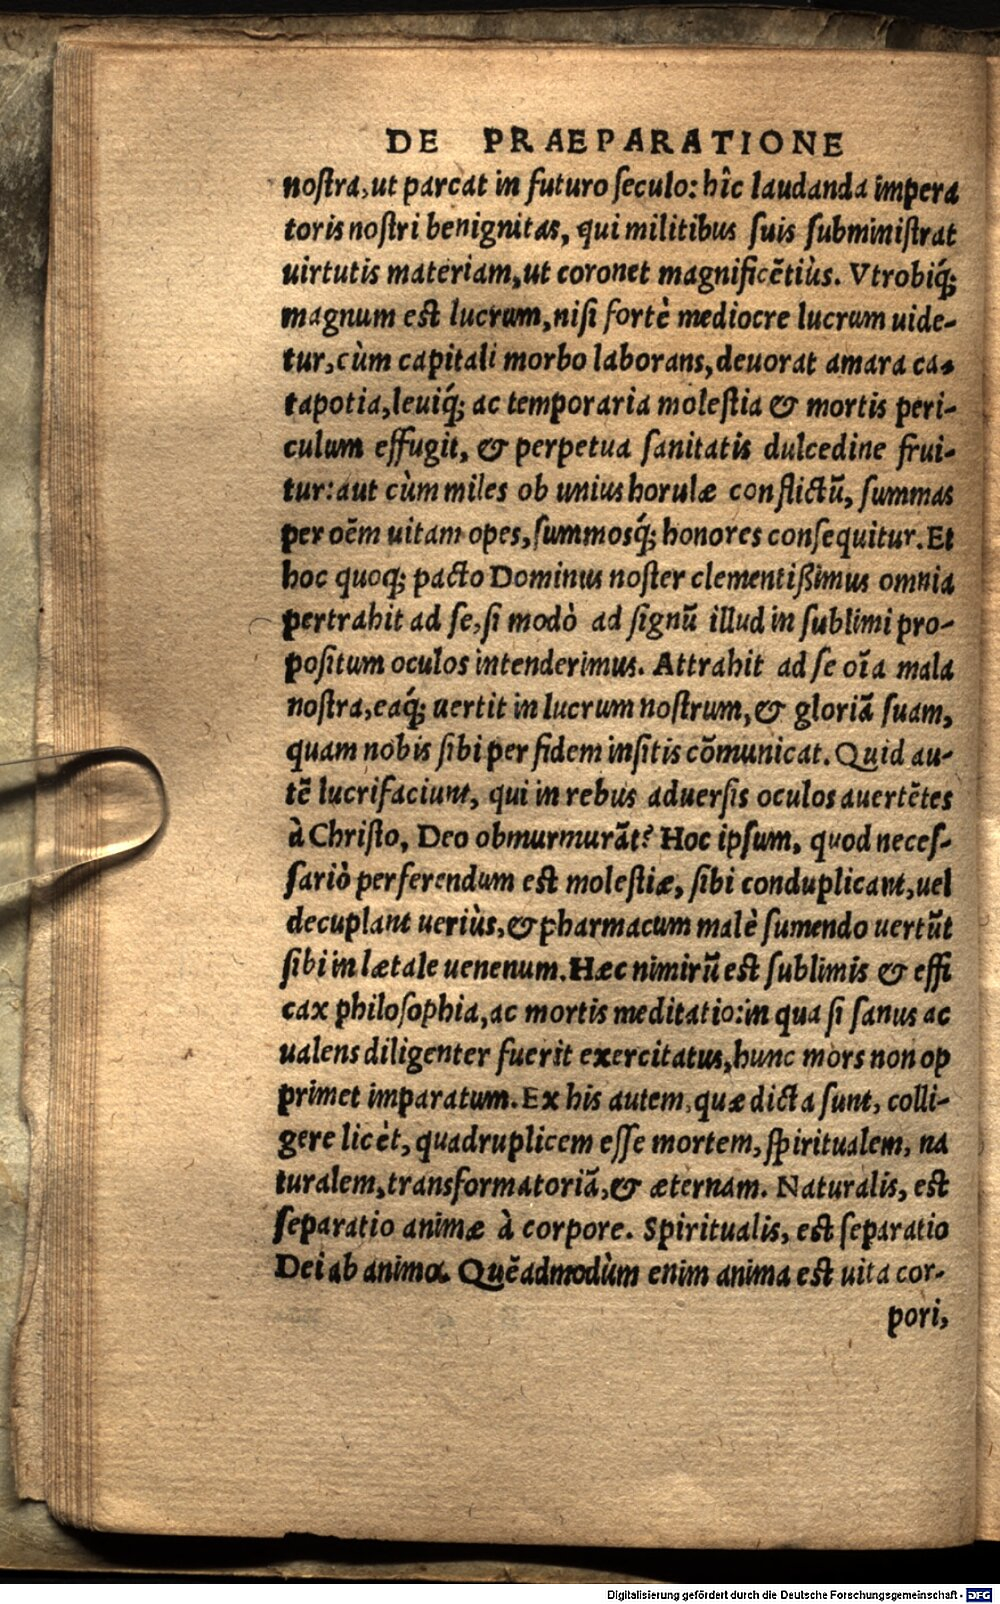 DE PRAEPARATIONE
noſtra, ut parcat in futuro ſeculo: hîc laudanda impera
toris noſtri benignitas, qui militibus ſuis ſubminiſtrat
uirtutis materiam, ut coronet magnificẽtiùs. Vtrobiq́;
magnum est lucrum, niſi fortè mediocre lucrum uide-
tur, cùm capitali morbo laborans, deuorat amara ca-
tapotia, leuiq́; ac temporaria moleſtia & mortis peri-
culum effugit, & perpetua ſanitatis dulcedine frui-
tur: aut cùm miles ob unius horulæ conflictũ, ſummas
per oẽm uitam opes, ſummosq́; honores conſequitur. Et
hoc quoq; pacto Dominus noſter clementißimus omnia
pertrahit ad ſe, ſi modò ad ſignũ illud in ſublimi pro-
poſitum oculos intenderimus. Attrahit ad ſe oĩa mala
noſtra, eaq́; uertit in lucrum noſtrum, & gloriã ſuam,
quam nobis ſibi per fidem inſitis cõmunicat. Quid au-
tẽ lucrifaciunt, qui in rebus aduerſis oculos auertẽtes
à Chriſto, Deo obmurmurãt? Hoc ipſum, quod neceſ-
ſariò perferendum est moleſtiæ, ſibi conduplicant, uel
decuplant ueriùs, & pharmacum malè ſumendo uertũt
ſibi in lætale uenenum. Hæc nimirũ est ſublimis & effi
cax philoſophia, ac mortis meditatio: in qua ſi ſanus ac
ualens diligenter fuerit exercitatus, hunc mors non op
primet imparatum. Ex his autem, quæ dicta ſunt, colli-
gere licèt, quadruplicem eſſe mortem, ſpiritualem, na
turalem, transformatoriã, & æternam. Naturalis, est
ſeparatio animæ à corpore. Spiritualis, est ſeparatio
Dei ab anima. Quẽadmodùm enim anima est uita cor-
pori,
Digitalisierung gefördert durch die Deutsche Forschungsgemeinschaft - DFG